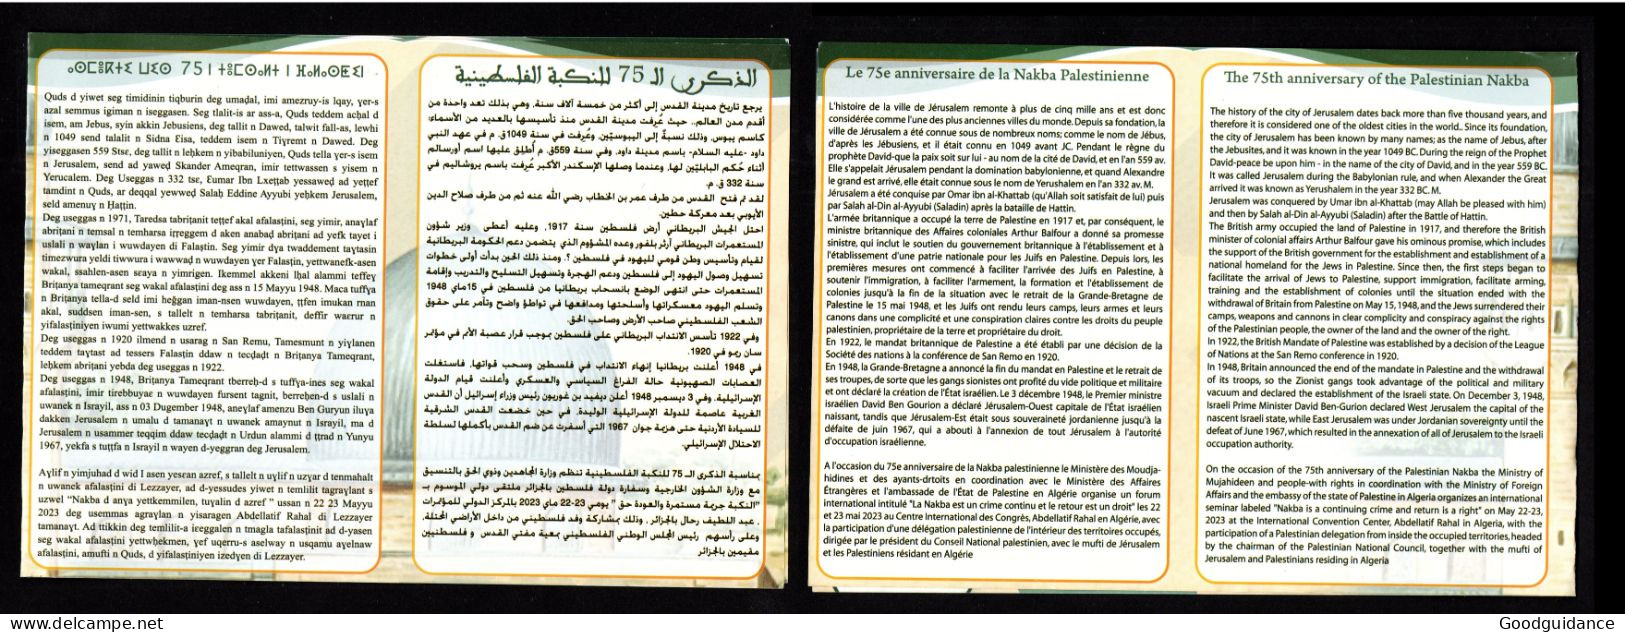 ⴰⵙⵎⴻⴽⵜⵉ ⵡⵉⵙ 75 ⵏ ⵜⵓⵎⵙⴰⵍⵜ ⵏ ⴼⴰⵍⴰⵙⵟⵉⵏ
Quds d yiwet seg timidinin tiqburin deg umaḍal, imi amezruy-is lqay, yer-s
azal semmus igiman n iseggasen. Seg tlalit-is ar ass-a, Quds teddem acḥal d
isem, am Jebus, syin akkin Jebusiens, deg tallit n Dawed, talwit fall-as, lewhi
n 1049 send talalit n Sidna Ɛisa, teddem isem n Tiɣremt n Dawed. Deg
yiseggasen 559 Stsr, deg tallit n leḥkem n yibabiluniyen, Quds tella yer-s isem
n Jerusalem, send ad yawed Skander Ameqran, imir tettwassen s yisem n
Yerucalem. Deg Useggas n 332 tsr, Ɛumar Ibn Lxeṭṭab yessaweḍ ad yeṭṭef
tamdint n Quds, ar deqqal yewweḍ Salaḥ Eddine Ayyubi yeḥkem Jerusalem,
seld amenuɣ n Ḥaṭṭin.
Deg useggas n 1971, Taredsa tabriṭanit teṭṭef akal afalasṭini, seg yimir, anaɣlaf
abriṭani n temsal n temharsa iṛṛeggem d aken anabaḍ abriṭani ad yefk tayet i
uslali n waɣlan i wuwdayen di Falasṭin. Seg yimir dɣa twaddement taytasin
timezwura yeldi tiwwura i wawwaḍ n wuwdayen ɣer Falasṭin, yettwanefk-asen
wakal, ssahlen-asen sraya n yimrigen. Ikemmel akkeni lḥal alammi teffeɣ
Briṭanya tameqrant seg wakal afalasṭini deg ass n 15 Mayyu 1948. Maca tuffɣa
n Briṭanya tella-d seld imi heǧǧan iman-nsen wuwdayen, ṭṭfen imukan rnan
akal, suddsen iman-sen, s tallelt n temharsa tabriṭanit, deffir waerur n
yifalasṭiniyen iwumi yettwakkes uzref.
Deg useggas n 1920 ilmend n usarag n San Remu, Tamesmunt n yiɣlanen
teddem taɣtast ad tessers Falasṭin ddaw n tecḍaḍt n Briṭanya Tameqrant,
leḥkem abriṭani yebda deg useggas n 1922.
Deg useggas n 1948, Briṭanya Tameqrant tberreḥ-d s tuffɣa-ines seg wakal
afalasṭini, imir tirebbuyae n wuwdayen fursent tagnit, berreḥen-d s uslali n
uwanek n Israyil, ass n 03 Dugember 1948, aneɣlaf amenzu Ben Guryun iluya
dakken Jerusalem n umalu d tamanaɣt n uwanek amaynut n Israyil, ma d
Jerusalem n usammer teqqim ddaw tecḍaḍt n Urdun alammi d ṭṭrad n Yunyu
1967, yekfa s tuṭṭfa n Israyil n wayen d-yeggran deg Jerusalem.
Aɣlif n yimjuhad d wid I asen yesran azref, s tallelt n uɣlif n uzɣar d tenmahalt
n uwanek afalasṭini di Lezzayer, ad d-yessudes yiwet n temlilit tagraɣlant s
uzwel “Nakba d anɣa yettkemmilen, tuɣalin d azref ” ussan n 22 23 Mayyu
2023 deg usemmas agraɣlan n yisaragen Abdellatif Rahal di Lezzayer
tamanaɣt. Ad ttikkin deg temlilit-a ireggalen n tmagla tafalasṭinit ad d-yasen
seg wakal afalasṭini yettwḥekmen, ɣef uqerru-s aselway n usqamu aɣelnaw
afalasṭini, amufti n Quds, d yifalasṭiniyen izedɣen di Lezzayer.
الذكرى الـ 75 للنكبة الفلسطينية
يرجع تاريخ مدينة القدس إلى أكثر من خمسة آلاف سنة، وهي بذلك تعد واحدة من
أقدم مدن العالم.. حيث عُرفت مدينة القدس منذ تأسيسها بالعديد من الأسماء؛
كاسم يبوس، وذلك نسبةً إلى اليبوستين، وعُرفت في سنة 1049ق.م في عهد النبي
داود -عليه السلام- باسم مدينة داود. وفي سنة 559ق.م أُطلق عليها اسم أورسالم
أثناء حُكم البابليّين لها، وعندما وصلها الإسكندر الأكبر عُرفت باسم يروشاليم في
سنة 332 ق.م.
لقد تم فتح القدس من طرف عمر بن الخطاب رضي الله عنه ثم من طرف صلاح الدين
الأيوبي بعد معركة حطين.
احتل الجيش البريطاني أرض فلسطين سنة 1917، وعليه أعطى وزير شؤون
المستعمرات البريطاني آرثر بلفور وعده المشؤوم الذي يتضمن دعم الحكومة البريطانية
لقيام وتأسيس وطن قومي لليهود في فلسطين ؟. ومنذ ذلك الحين بدأت أولى خطوات
تسهيل وصول اليهود إلى فلسطين ودعم الهجرة وتسهيل التسليح والتدريب وإقامة
المستعمرات حتى انتهى الوضع بانسحاب بريطانيا من فلسطين في 15ماي 1948
وتسلم اليهود معسكراتها وأسلحتها ومدافعها في تواطؤ واضح وتآمر على حقوق
الشعب الفلسطيني صاحب الأرض وصاحب الحق.
وفي 1922 تأسس الانتداب البريطاني على فلسطين بموجب قرار عصبة الأمم في مؤتمر
سان ريمو في 1920.
في 1948 أعلنت بريطانيا إنهاء الانتداب في فلسطين وسحب قواتها، فاستغلت
العصابات الصهيونية حالة الفراغ السياسي والعسكري وأعلنت قيام الدولة
الإسرائيلية. وفي 3 ديسمبر 1948 أعلن ديفيد بن غوريون رئيس وزراء إسرائيل أن القدس
الغربية عاصمة للدولة الإسرائيلية الوليدة، في حين خضعت القدس الشرقية
للسيادة الأردنية حتى هزيمة جوان 1967 التي أسفرت عن ضم القدس بأكملها لسلطة
الاحتلال الإسرائيلي.
بمناسبة الذكرى الـ 75 للنكبة الفلسطينية تنظم وزارة المجاهدين وذوي الحق بالتنسيق
مع وزارة الشؤون الخارجية وسفارة دولة فلسطين بالجزائر ملتقى دولي الموسوم بـ
"النكبة جريمة مستمرة والعودة حق " يومي 22-23 ماي 2023 بالمركز الدولي للمؤتمرات
، عبد اللطيف رحال بالجزائر، وذلك بمشاركة وفد فلسطيني من داخل الأراضي المحتلة،
وعلى رأسهم رئيس المجلس الوطني الفلسطيني بمعية مفتي القدس و فلسطينيين
مقيمين بالجزائر
Le 75e anniversaire de la Nakba Palestinienne
L'histoire de la ville de Jérusalem remonte à plus de cinq mille ans et est donc
considérée comme l'une des plus anciennes villes du monde. Depuis sa fondation, la
ville de Jérusalem a été connue sous de nombreux noms; comme le nom de Jébus,
d'après les Jébusiens, et il était connu en 1049 avant JC. Pendant le règne du
prophète David-que la paix soit sur lui - au nom de la cité de David, et en l'an 559 av.
Elle s'appelait Jérusalem pendant la domination babylonienne, et quand Alexandre
le grand est arrivé, elle était connue sous le nom de Yerushalem en l'an 332 av. M.
Jérusalem a été conquise par Omar ibn al-Khattab (qu'Allah soit satisfait de lui) puis
par Salah al-Din al-Ayyubi (Saladin) après la bataille de Hattin.
L'armée britannique a occupé la terre de Palestine en 1917 et, par conséquent, le
ministre britannique des Affaires coloniales Arthur Balfour a donné sa promesse
sinistre, qui inclut le soutien du gouvernement britannique à l'établissement et à
l'établissement d'une patrie nationale pour les Juifs en Palestine. Depuis lors, les
premières mesures ont commencé à faciliter l'arrivée des Juifs en Palestine, à
soutenir l'immigration, à faciliter l'armement, la formation et l'établissement de
colonies jusqu'à la fin de la situation avec le retrait de la Grande-Bretagne de
Palestine le 15 mai 1948, et les Juifs ont rendu leurs camps, leurs armes et leurs
canons dans une complicité et une conspiration claires contre les droits du peuple
palestinien, propriétaire de la terre et propriétaire du droit.
En 1922, le mandat britannique de Palestine a été établi par une décision de la
Société des nations à la conférence de San Remo en 1920.
En 1948, la Grande-Bretagne a annoncé la fin du mandat en Palestine et le retrait de
ses troupes, de sorte que les gangs sionistes ont profité du vide politique et militaire
et ont déclaré la création de l'État israélien. Le 3 décembre 1948, le Premier ministre
israélien David Ben Gourion a déclaré Jérusalem-Ouest capitale de l'État israélien
naissant, tandis que Jérusalem-Est était sous souveraineté jordanienne jusqu'à la
défaite de juin 1967, qui a abouti à l'annexion de tout Jérusalem à l'autorité
d'occupation israélienne.
A l'occasion du 75e anniversaire de la Nakba palestinienne le Ministère des Moudja-
hidines et des ayants-drtoits en coordination avec le Ministère des Affaires
Étrangères et l'ambassade de l'État de Palestine en Algérie organise un forum
international intitulé "La Nakba est un crime continu et le retour est un droit" les 22
et 23 mai 2023 au Centre International des Congrès, Abdellatif Rahal en Algérie, avec
la participation d'une délégation palestinienne de l'intérieur des territoires occupés,
dirigée par le président du Conseil National palestinien, avec le mufti de Jérusalem
et les Palestiniens résidant en Algérie
The 75th anniversary of the Palestinian Nakba
The history of the city of Jerusalem dates back more than five thousand years, and
therefore it is considered one of the oldest cities in the world.. Since its foundation,
the city of Jerusalem has been known by many names; as the name of Jebus, after
the Jebusites, and it was known in the year 1049 BC. During the reign of the Prophet
David-peace be upon him - in the name of the city of David, and in the year 559 BC.
It was called Jerusalem during the Babylonian rule, and when Alexander the Great
arrived it was known as Yerushalem in the year 332 BC. M.
Jerusalem was conquered by Umar ibn al-Khattab (may Allah be pleased with him)
and then by Salah al-Din al-Ayyubi (Saladin) after the Battle of Hattin.
The British army occupied the land of Palestine in 1917, and therefore the British
minister of colonial affairs Arthur Balfour gave his ominous promise, which includes
the support of the British government for the establishment and establishment of a
national homeland for the Jews in Palestine. Since then, the first steps began to
facilitate the arrival of Jews to Palestine, support immigration, facilitate arming,
training and the establishment of colonies until the situation ended with the
withdrawal of Britain from Palestine on May 15, 1948, and the Jews surrendered their
camps, weapons and cannons in clear complicity and conspiracy against the rights
of the Palestinian people, the owner of the land and the owner of the right.
In 1922, the British Mandate of Palestine was established by a decision of the League
of Nations at the San Remo conference in 1920.
In 1948, Britain announced the end of the mandate in Palestine and the withdrawal
of its troops, so the Zionist gangs took advantage of the political and military
vacuum and declared the establishment of the Israeli state. On December 3, 1948,
Israeli Prime Minister David Ben-Gurion declared West Jerusalem the capital of the
nascent Israeli state, while East Jerusalem was under Jordanian sovereignty until the
defeat of June 1967, which resulted in the annexation of all of Jerusalem to the Israeli
occupation authority.
On the occasion of the 75th anniversary of the Palestinian Nakba the Ministry of
Mujahideen and people-with rights in coordination with the Ministry of Foreign
Affairs and the embassy of the state of Palestine in Algeria organizes an international
seminar labeled "Nakba is a continuing crime and return is a right" on May 22-23,
2023 at the International Convention Center, Abdellatif Rahal in Algeria, with the
participation of a Palestinian delegation from inside the occupied territories, headed
by the chairman of the Palestinian National Council, together with the mufti of
Jerusalem and Palestinians residing in Algeria
delcampe.net
Goodguidance